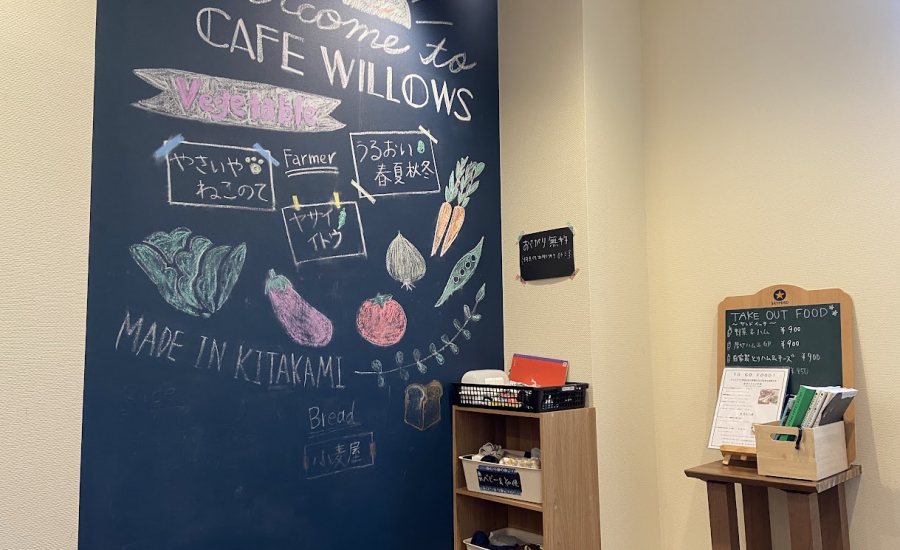 Welcome to
CAFE WILLOWS
Vegetable
やさいや
ねこのて
Farmer
うるおい
春夏秋冬
ヤサイ
イトウ
MADE IN KITAKAMI
Bread
小麦屋
おかわり無料
TAKE OUT FOOD
〜サンドイッチ〜
野菜&ハム ¥900
¥900
自家製とりハム&チーズ ¥900
¥450
TO GO FOOD!